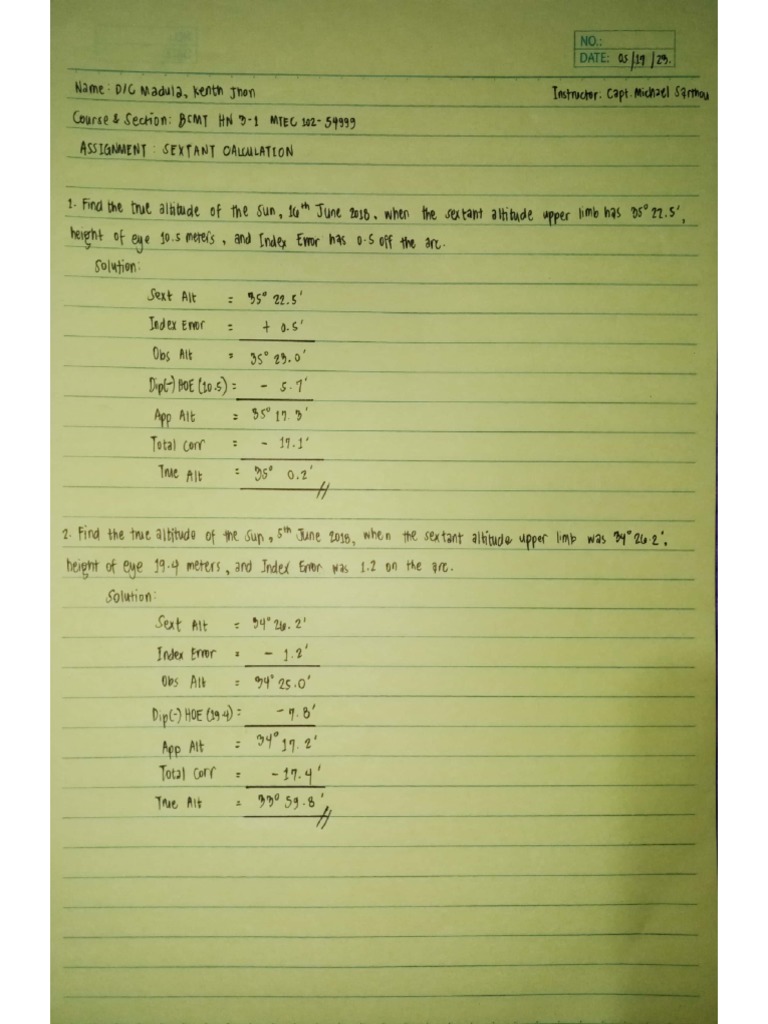 NO.:
DATE: 05/19/23.
Name: D/C Madula, Kenth Jhon
Instructor: Capt. Michael Sarthou
Course & Section: BCMT HN 3-1 MTEC 102-59999
ASSIGNMENT: SEXTANT CALCULATION
1. Find the true altitude of the Sun, 16th June 2018, when the sextant altitude upper limb has 35° 22.5',
height of eye 10.5 meters, and Index Error has 0.5 off the arc.
Solution:
Sext Alt = 35° 22.5'
Index Error = + 0.5'
Obs Alt = 35° 23.0'
Dip(-) HOE (10.5) = - 5.7'
App Alt = 35° 17.3'
Total Corr = - 17.1'
True Alt = 35° 0.2'
2. Find the true altitude of the Sun, 5th June 2018, when the sextant altitude upper limb was 34° 26.2',
height of eye 19.4 meters, and Index Error was 1.2 on the arc.
Solution:
Sext Alt = 34° 26.2'
Index Error = - 1.2'
Obs Alt = 34° 25.0'
Dip(-) HOE (19.4) = - 7.8'
App Alt = 34° 17.2'
Total Corr = - 17.4'
True Alt = 33° 59.8'